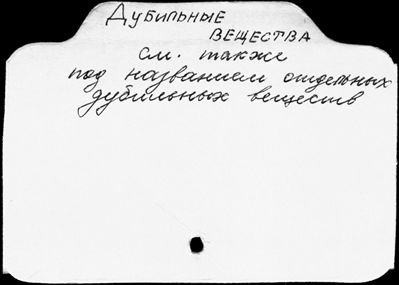 Дубильные
вещества
см. также
под названием отдельных
дубильных веществ